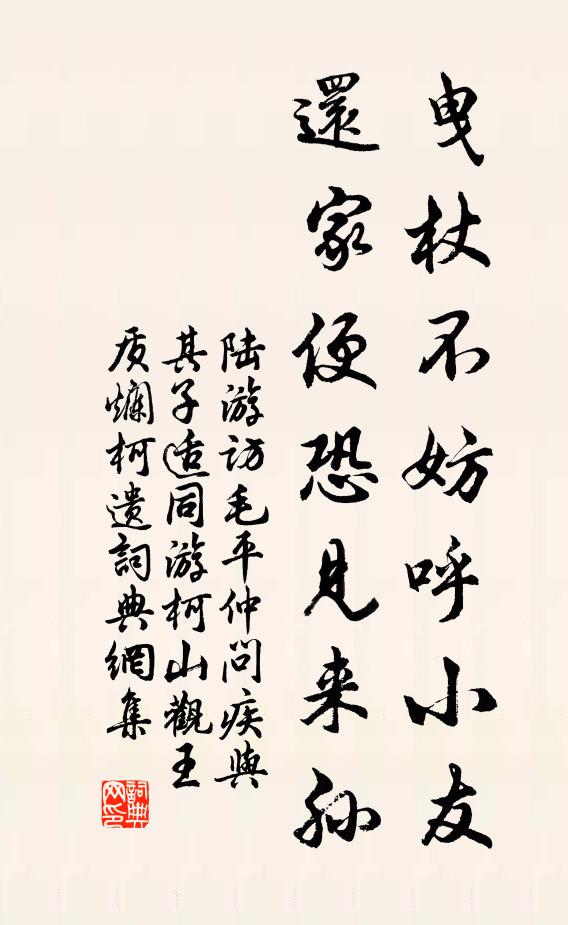 曳杖不妨呼小友
還家便恐見来孙
陆游访毛平仲问疾與
其子适同游柯山觀王
质爛柯遗詞典網集
詞典
网印